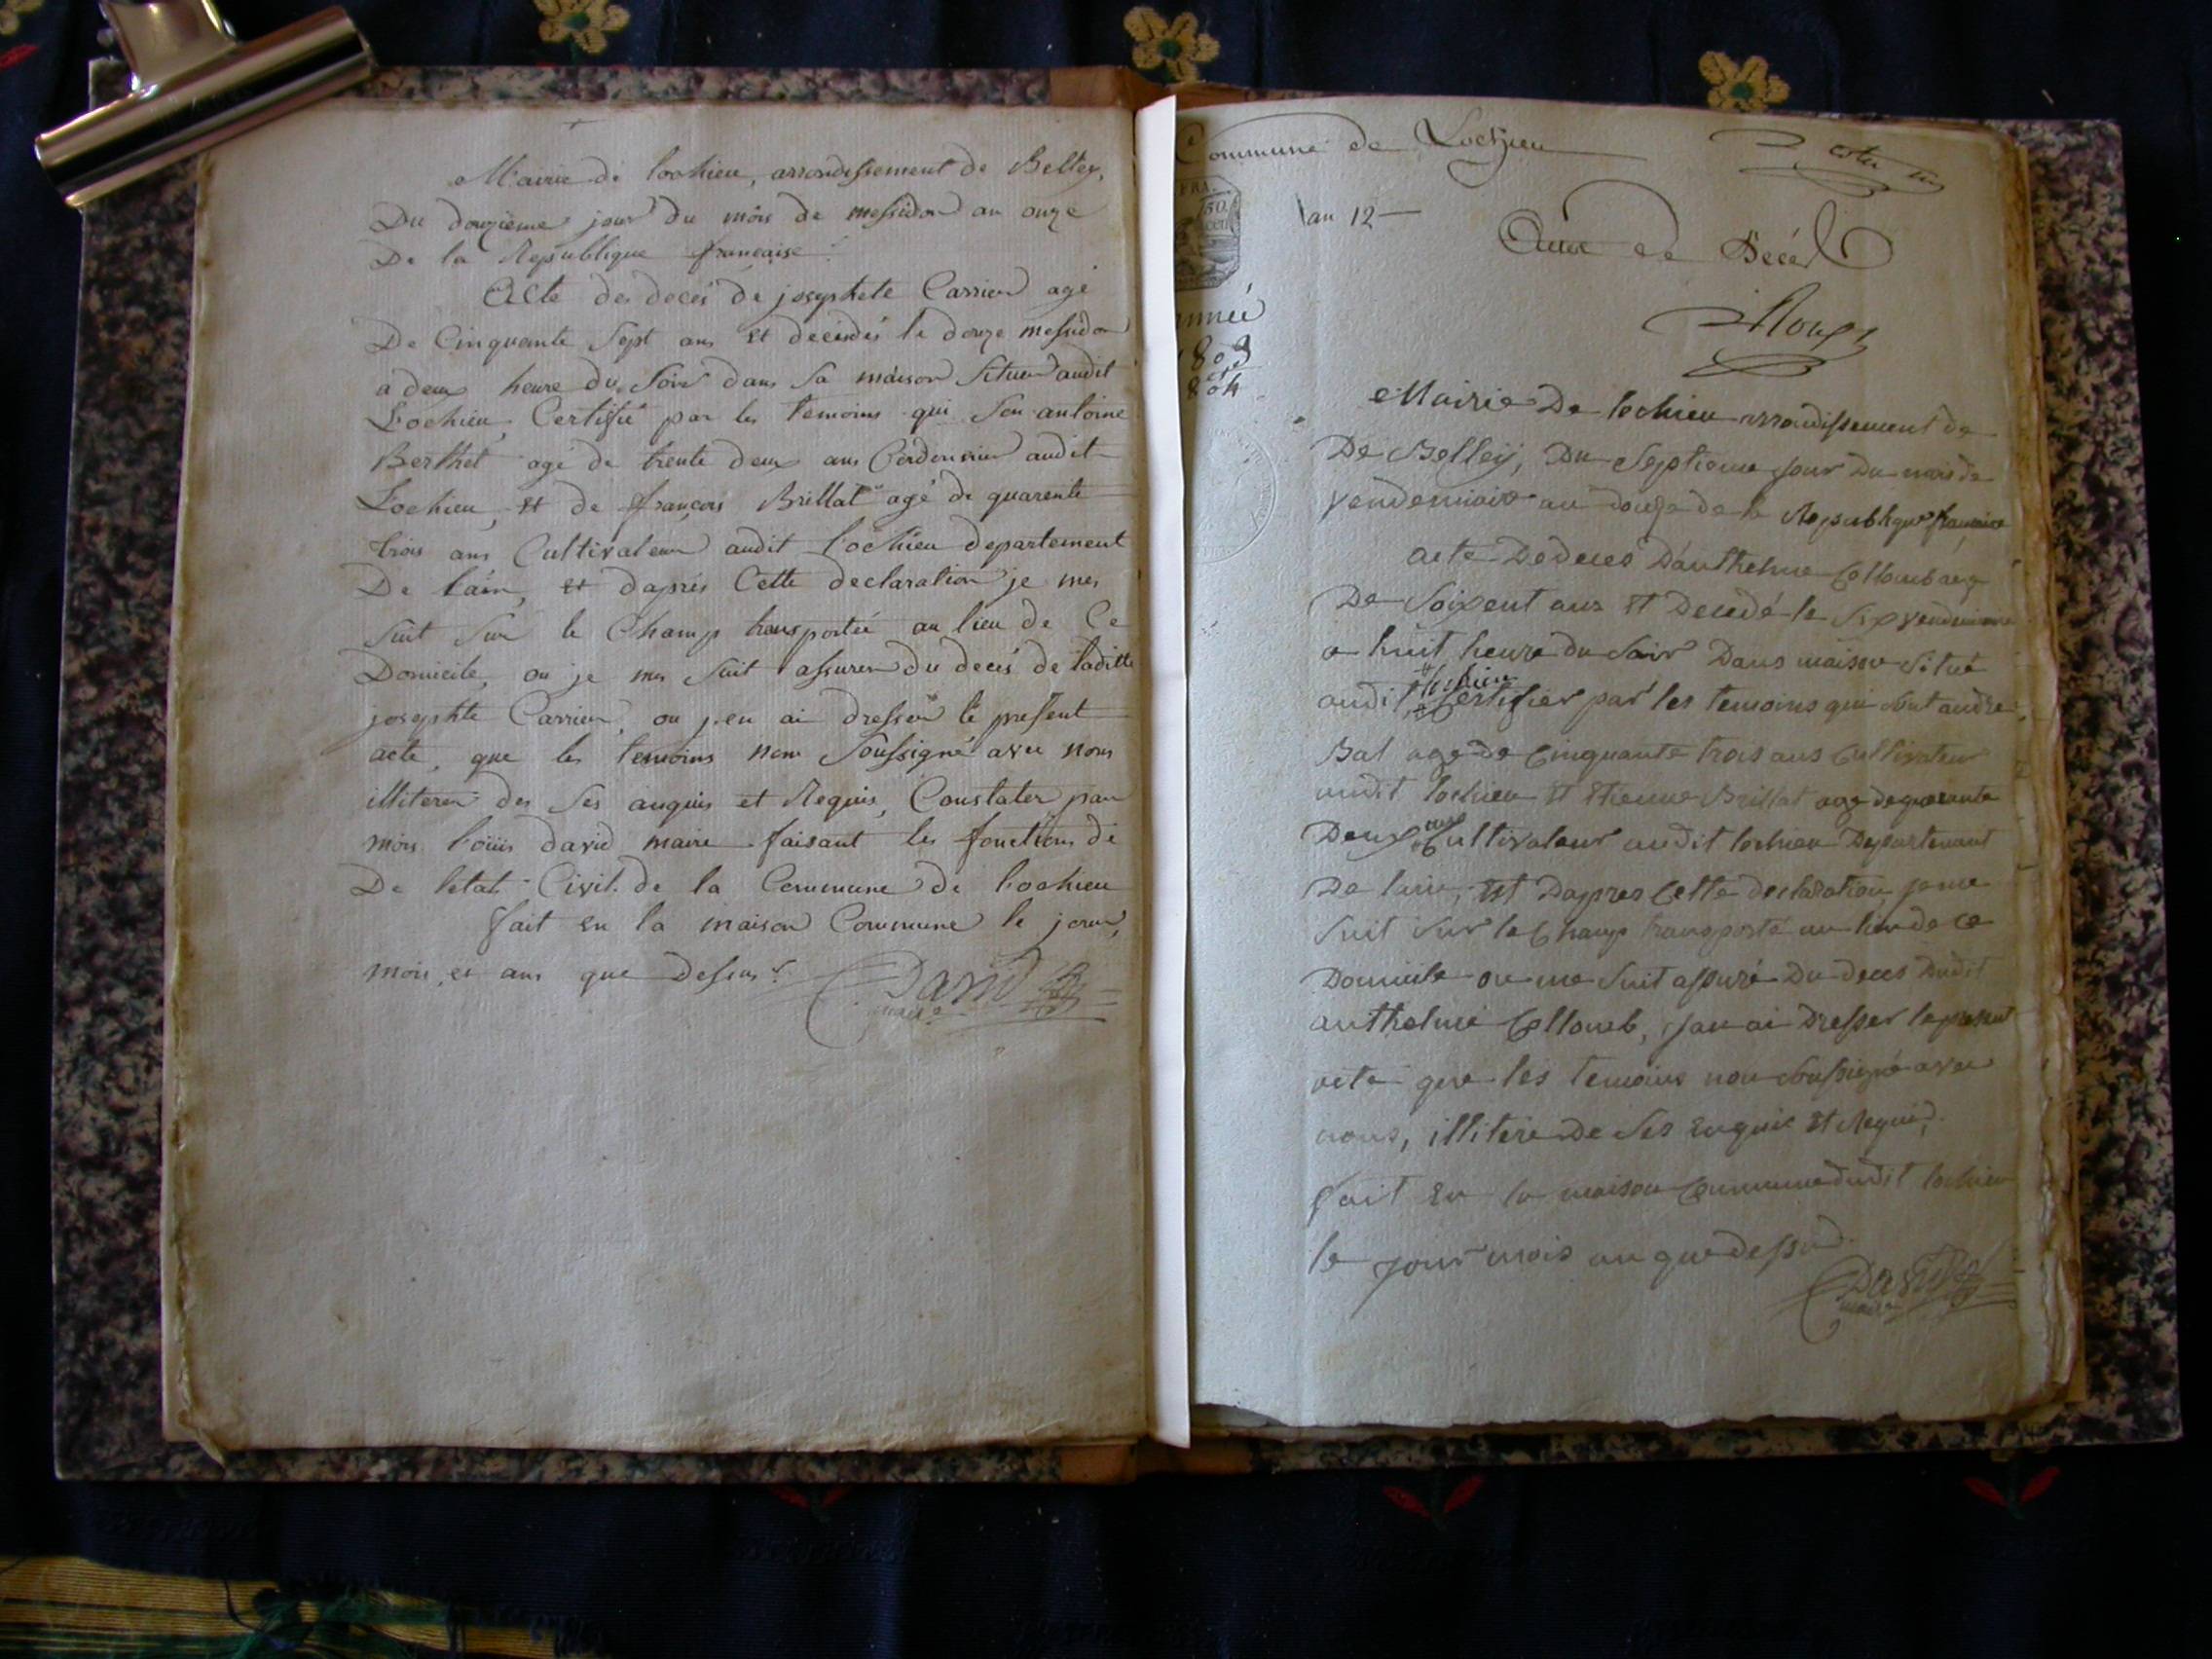 Mairie de lochieu, arrondissement de Belley,
Du douzieme jour du mois de messidor an onze
De la Republique francaise.
Acte des decés de josephete Carrier agé
De Cinquante Sept ans et decendés le douze messidor
a deux heure du Soire dans Sa maison Situer audit
Lochieu, Certifié par les temoins qui Son antoine
Berthet agé de trente deux ans Cordonnier audit
Lochieu, et de françois Brillat agé de quarente
trois ans Cultivateur audit lochieu departement
De lain, et daprés Cette declaration je mes
Suit Sur le Champ transportée au lieu de Ce
Domicile, ou je mes Suit assurer du decés de laditte
josephte Carrier, ou j'en ai dresser le present
acte, que les temoins non Soussigné avec nous
illiterer des Ses anquis et Requis, Constater par
mois louis david maire faisant les fonctions de
De letat Civil de la Commune de lochieu
fait en la maison Commune le jour,
mois, et ans que dessus.
David
maire
Commune de Lochieu
FRA.
50.
cen
an 12
Acte de Décés
année
1803
et
1804
Mairie De lochieu arrondissement de
De Belley, Du Septieme jour Du mois de
Vendemiaire an douze de la Republique francaise
acte De deces D'anthelme Collomb agé
De Soixent ans et Decedé le Six vendemiaire
a huit heure du Soir Dans maison Situé
lochieu
audit, Certifier par les temoins qui Sont andre
Bal age de Cinquante trois ans Cultivateur
audit lochieu et Etienne Brillat age de quarante
ans
Deux Cultivateur audit lochieu Departement
De lain, et Dapres Cette declaration je me
Suit Sur le Champ transporté au lieu de ce
Domicile ou me Suit assuré Du deces Dudit
anthelme Collomb, jan ai Dresser le present
acte que les temoins non Soussigné avec
nous, illitere De Ses Enquis et Requis,
fait En la maison Commune dudit lochieu
le jour mois an que dessus.
David
maire